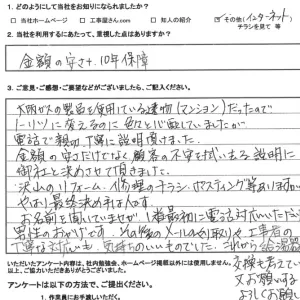 1. どのようにして当社をお知りになられましたか？
□ 当社ホームページ □ 工事屋さん.com □ 知人の紹介 □ その他(インターネット
チラシを見て 等
2. 当社を利用するにあたって、重視した点はありますか？
金額の安さ、10年保障
3. ご意見・ご感想・ご要望などがございましたら、ご記入ください。
大阪ガスの製品を使用している建物(マンション)だったので
トーリツに変えるのに色々と心配していましたが
電話で親切、丁寧に説明頂けました。
金額の安さだけでなく顧客の不安を拭い去る説明に
御社と決めさせて頂きました。
沢山のリフォーム、修理のチラシ、ポスティング等ありますが
やはり最終決め手は人です。
お名前を聞いていませんが、1番最初に電話対応いただいた
男性のおかげです。その後のメールのやり取りや工事者の
丁寧な対応いも、気持ちのいいものでした。これから給湯器
いただいたアンケート内容は、社内勉強会、ホームページ掲載以外には使用しません。
以上、ご協力いただきありがとうございました。
交換も考えてい
又お願いする
よろしくお願い
アンケートは以下の方法で、ご提出ください。
1. 作業員にお手渡しください。